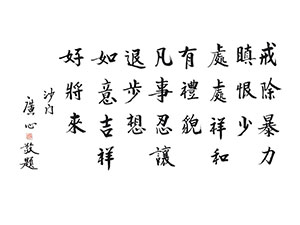 戒除暴力
瞋恨少
處處祥和
有禮貌
凡事忍讓
退步想
如意吉祥
好將來
沙門
廣心敬題